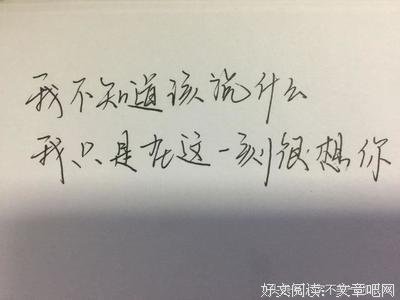 我不知道该说什么
我只是在这一刻很想你
好文阅读:不文章吧网